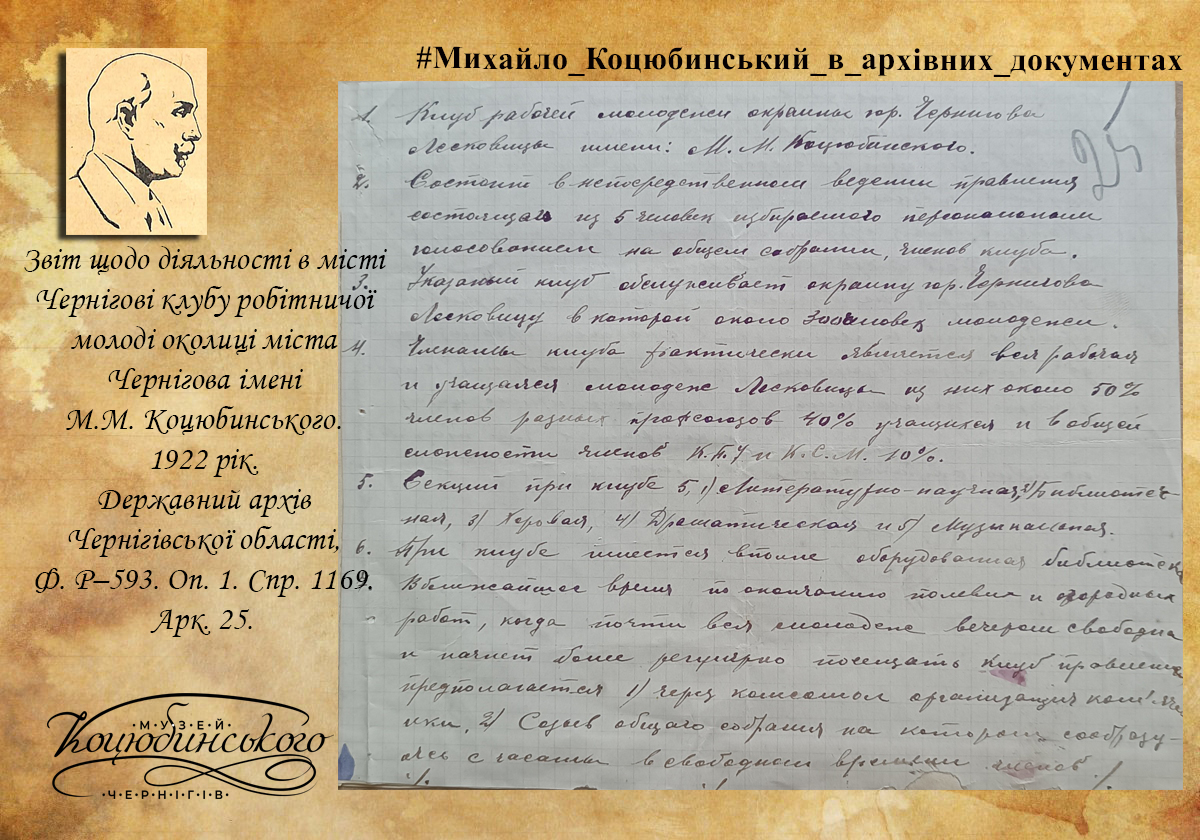 #Михайло_Коцюбинський_в_архівних_документах
Звіт щодо діяльності в місті
Чернігові клубу робітничої
молоді околиці міста
Чернігова імені
М.М. Коцюбинського.
1922 рік.
Державний архів
Чернігівської області,
Ф. Р–593. Оп. 1. Спр. 1169.
Арк. 25.
МУЗЕЙ
Коцюбинського
ЧЕРНІГІВ
25
1. Клуб рабочей молодежи окраины гор. Чернигова
Лесковицы имени: М. М. Коцюбинского.
2. Состоит в непосредственном ведении правления
состоящаго из 5 человек избираемого персональным
голосованием на общем собрании, членов клуба.
3. Указаный клуб обслуживает окраину гор. Чернигова
Лесковицу в которой около 300 человек молодежи.
4. Членами клуба фактически является вся рабочая
и учащаяся молодеж Лесковицы из них около 50%
членов разных профсоюзов 40% учащихся и в общей
сложности членов К.П.У и К.С.М. 10%.
5. Секций при клубе 5, 1) Литературно-научная, 2) Библиотеч-
ная, 3) Хоровая, 4) Драматическая и 5) Музыкальная.
6. При клубе имеется вполне оборудованная библиотека
7. В ближайшее время по окончанию полевых и огородных
работ, когда почти вся молодеж вечером свободна
и начнет более регулярно посещать клуб правление
предполагается 1) через комсомол организация
2) Созыв общаго собрания на котором сообразу-
ясь с часами в свободном времени членов